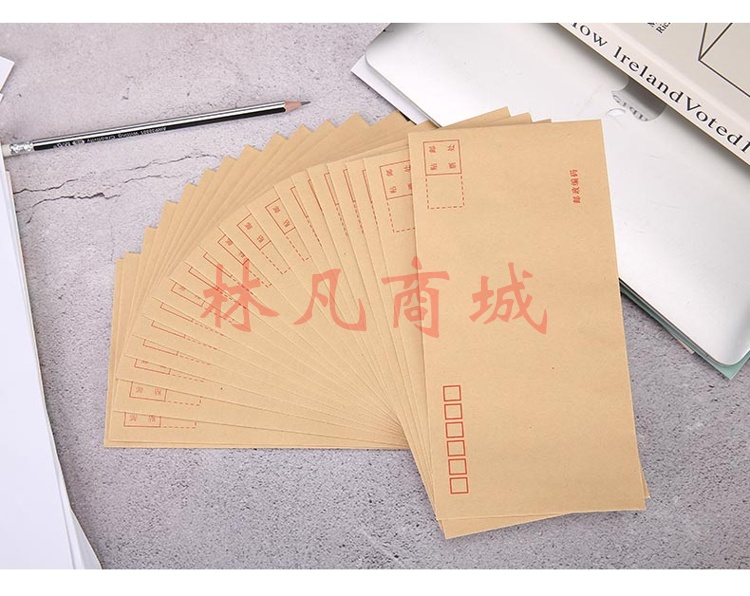 How IrelandVoted
邮 处
贴 票
邮政编码
林凡商城